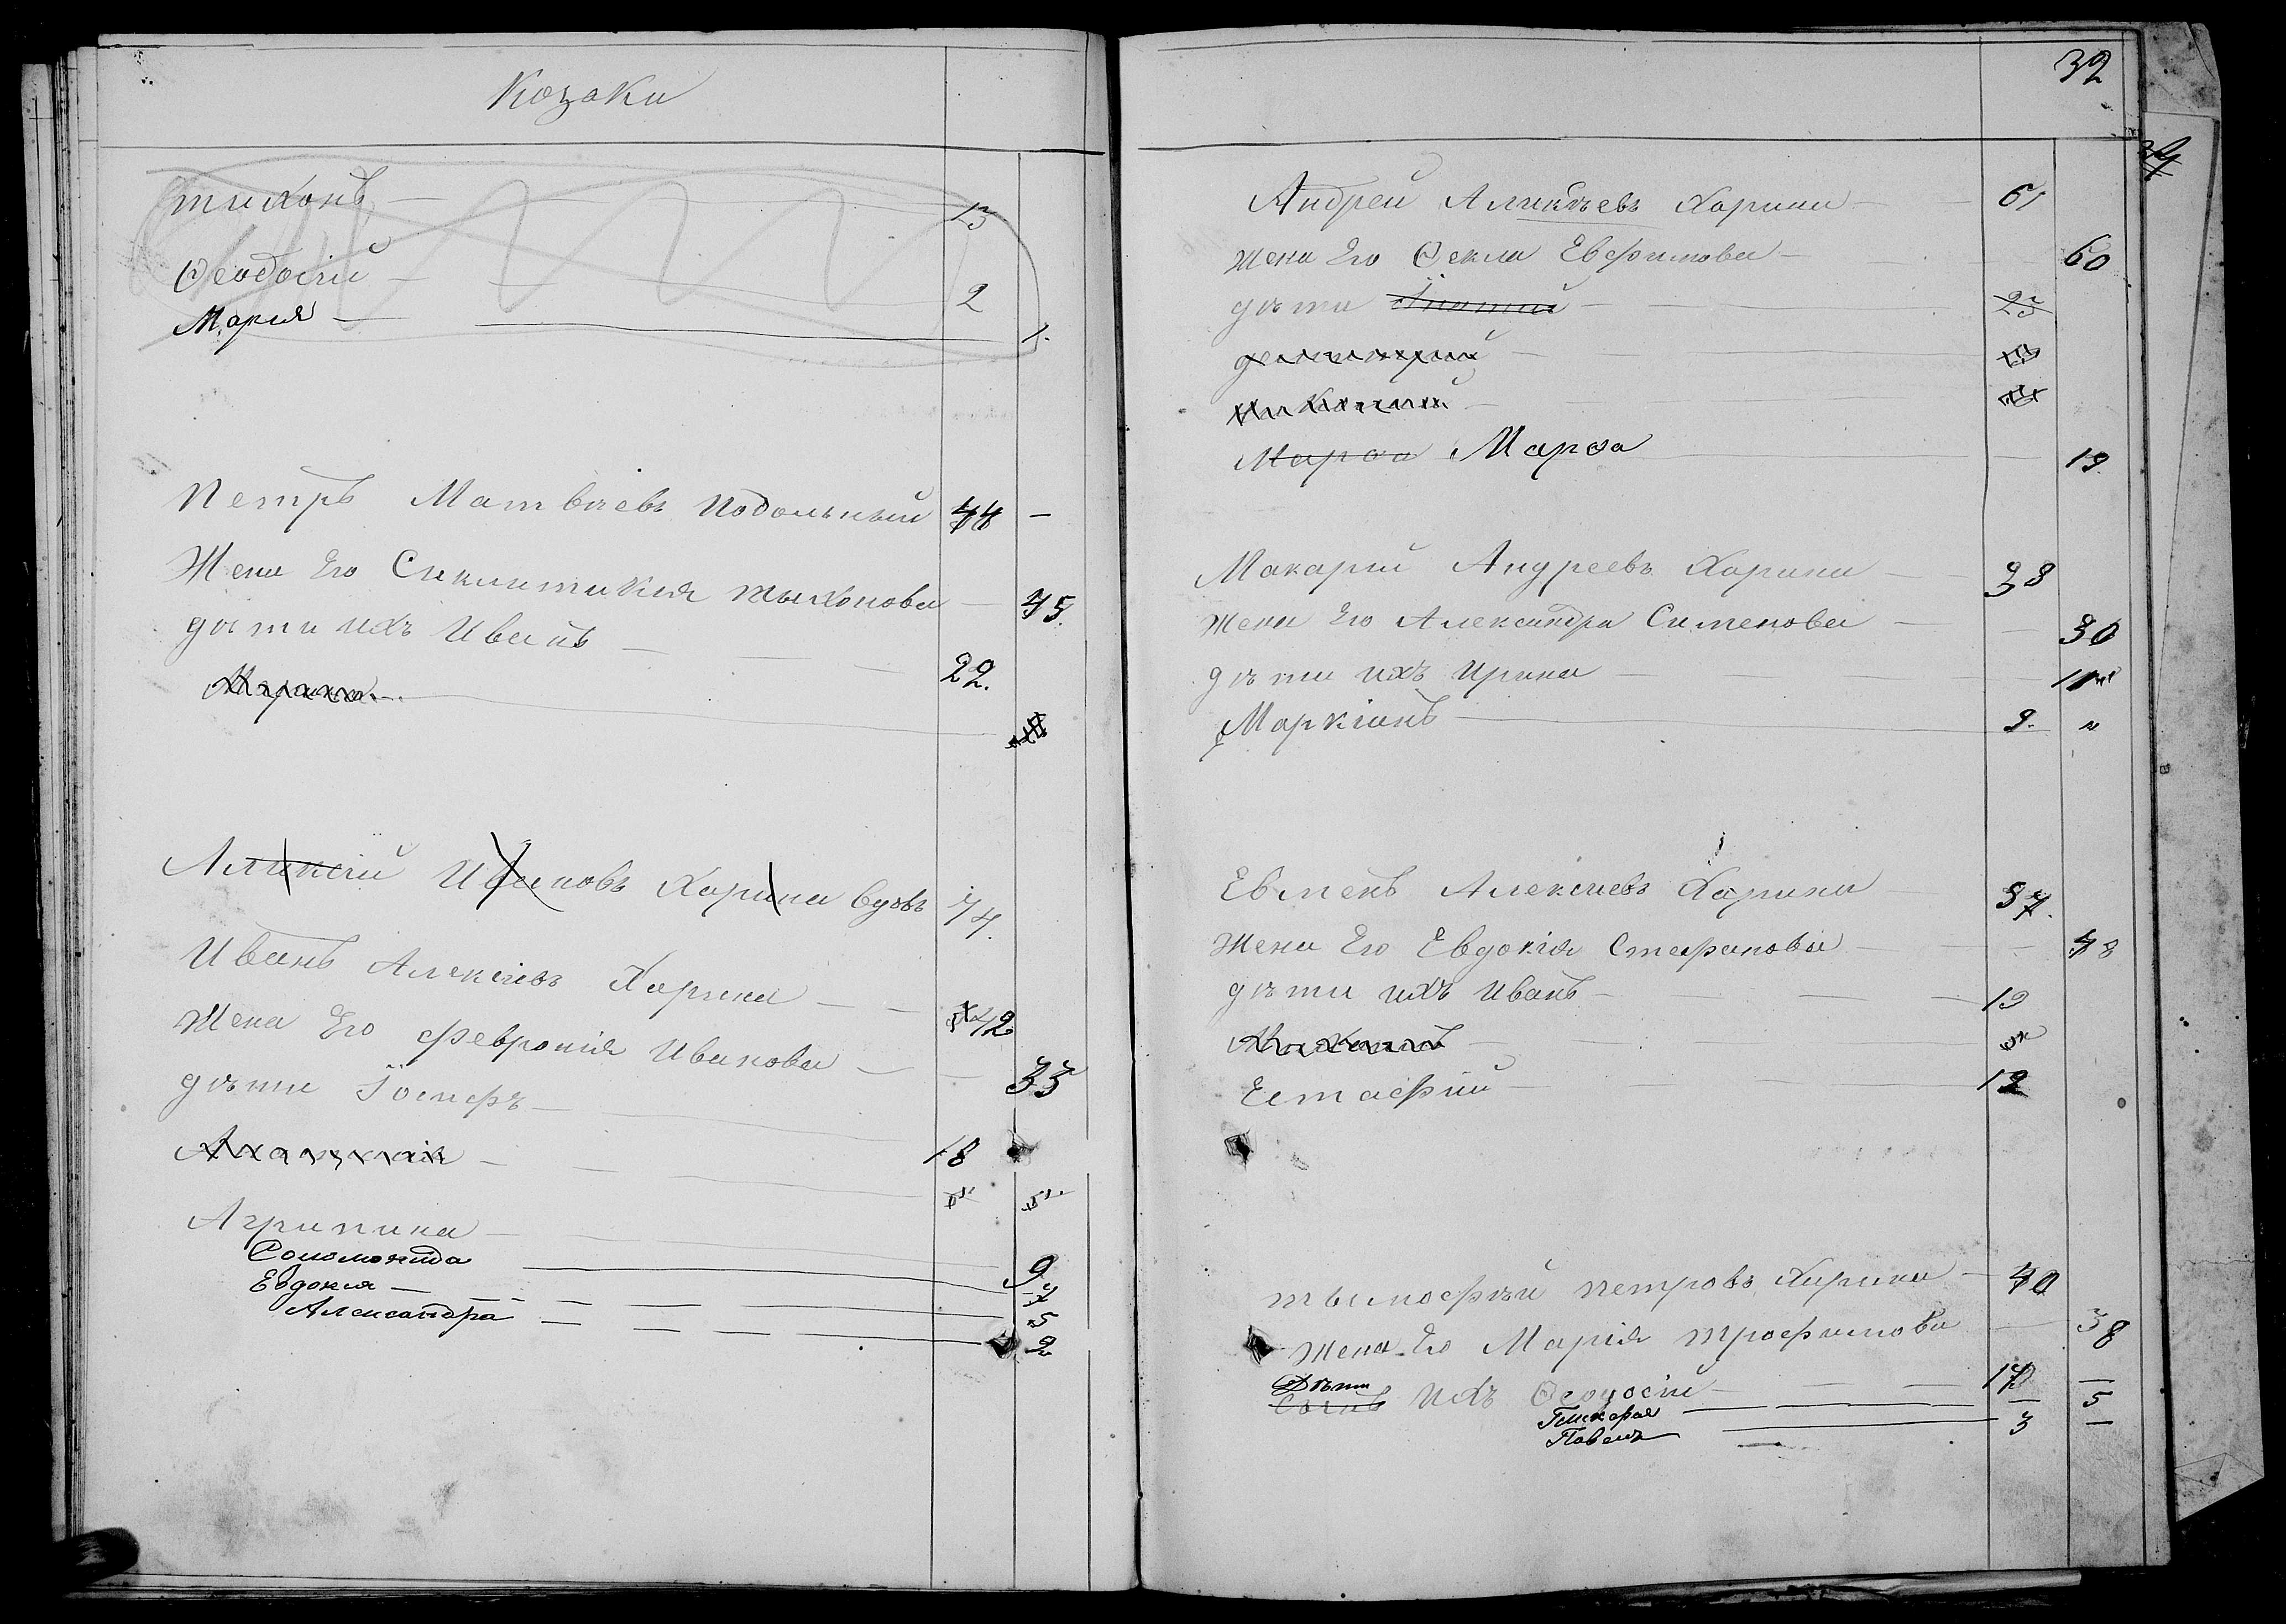 Козаки
тихонъ 13
Ѳеодосій 2
Мария 1.
Петръ Матвѣевъ Подольный 44 —
Жена Его Сиклитикия тыхонова 45.
дѣти ихъ Иванъ 22.
Марина
Аликсій Ивановъ Харина вдвъ 74.
Иванъ Алексіевъ Харина 42
Жена Его февронія Иванова 33
дѣти Іосифъ 18
Агрипина 9
Соломонида 7
Евдокия 5
Александра 2
32
Андрей Аликсѣевъ Харина 61
жена Его Ѳекла Евфимова 60
дѣти 23
демитрий
Марѳа Марѳа 19.
Макарий Андреевъ Харина 38
жена Его Александра Сименова 30
дѣти ихъ Ирина 11
Маркіанъ 9. "
Евменъ Алексіевъ Харина 37.
жена Его Евдокія Стефанова 48
дѣти ихъ Иванъ 19
Естафий 12
тымофѣй петровъ Харина 40
жена Его Марія трофимова 38
Дѣти Сынъ ихъ Ѳеодосій 17 —
Гликерия — 5
Павелъ 3 —